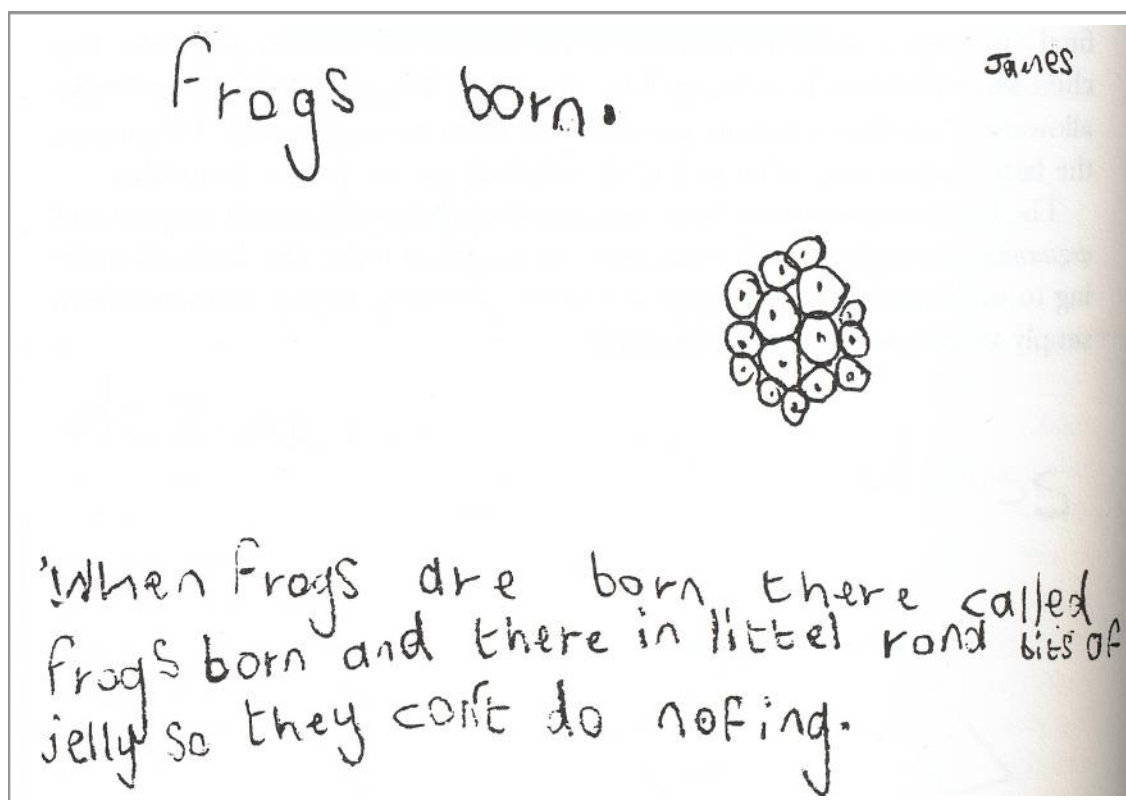 frogs born.
James
When frogs are born there called
frogs born and there in littel rond bits of
jelly so they con't do nofing.